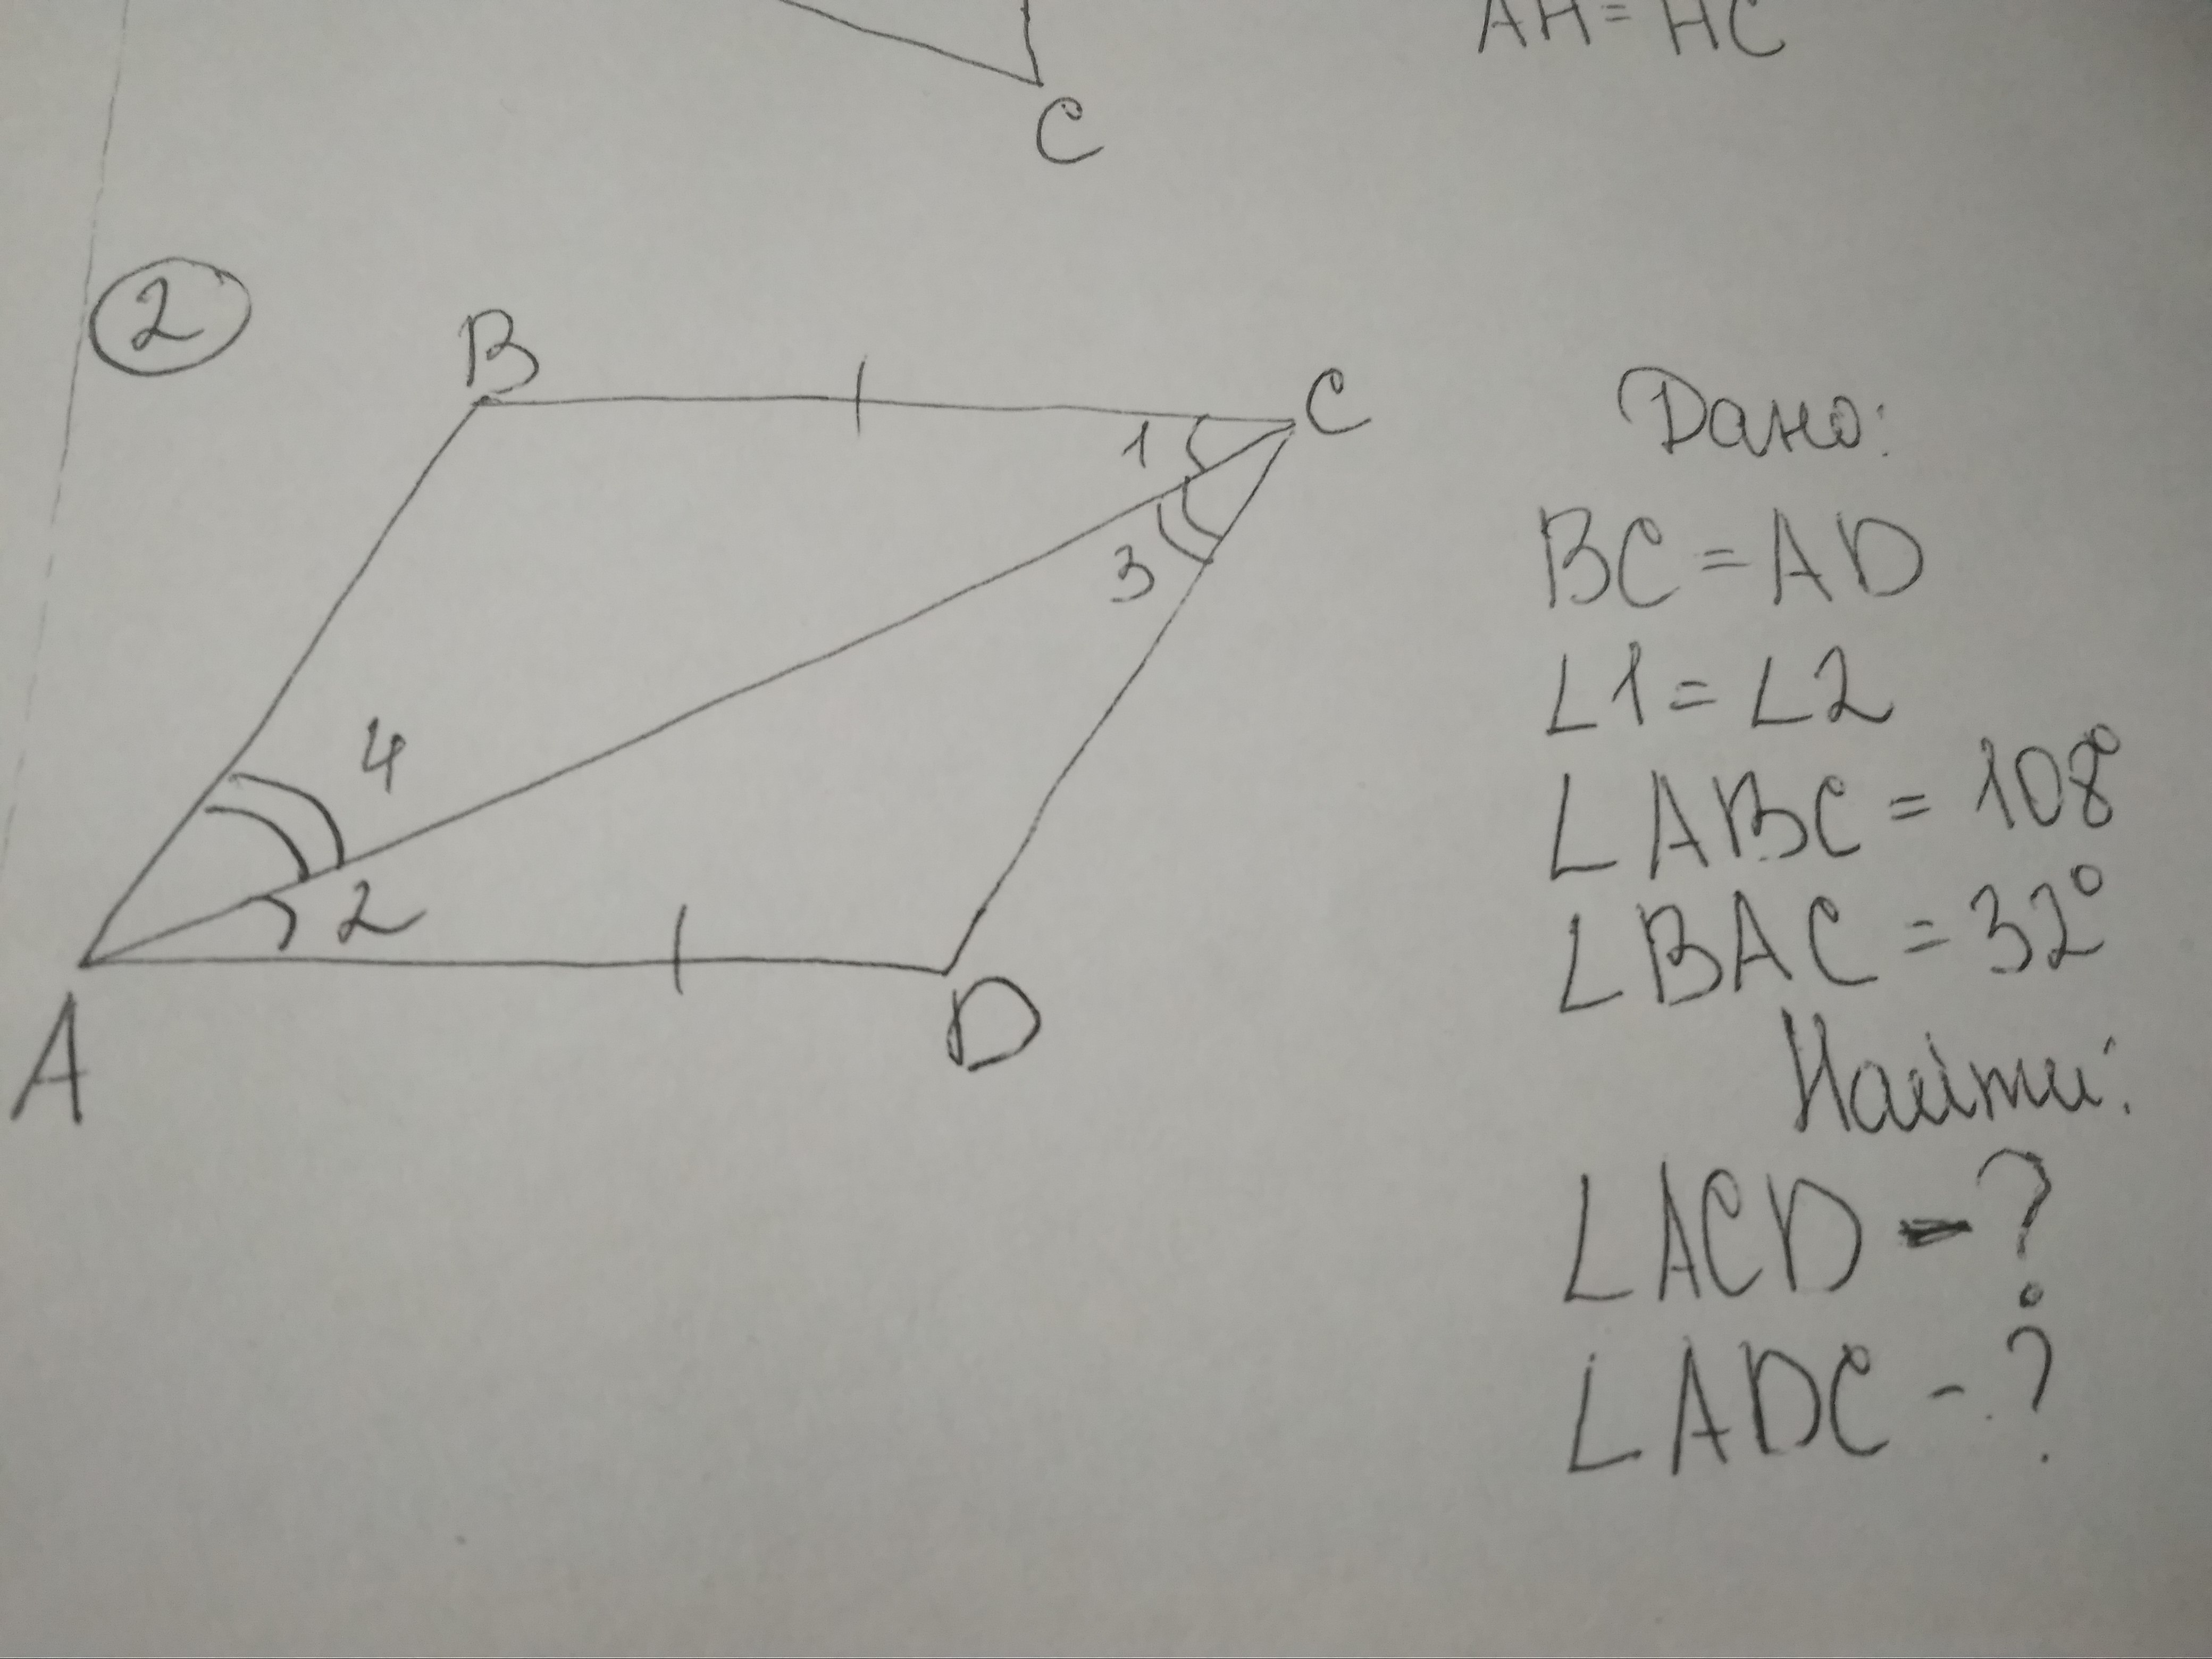 AH = HC
C
2
B
C
1
3
4
2
A
D
Дано:
BC = AD
∠1 = ∠2
∠ABC = 108°
∠BAC = 32°
Найти:
∠ACD - ?
∠ADC - ?